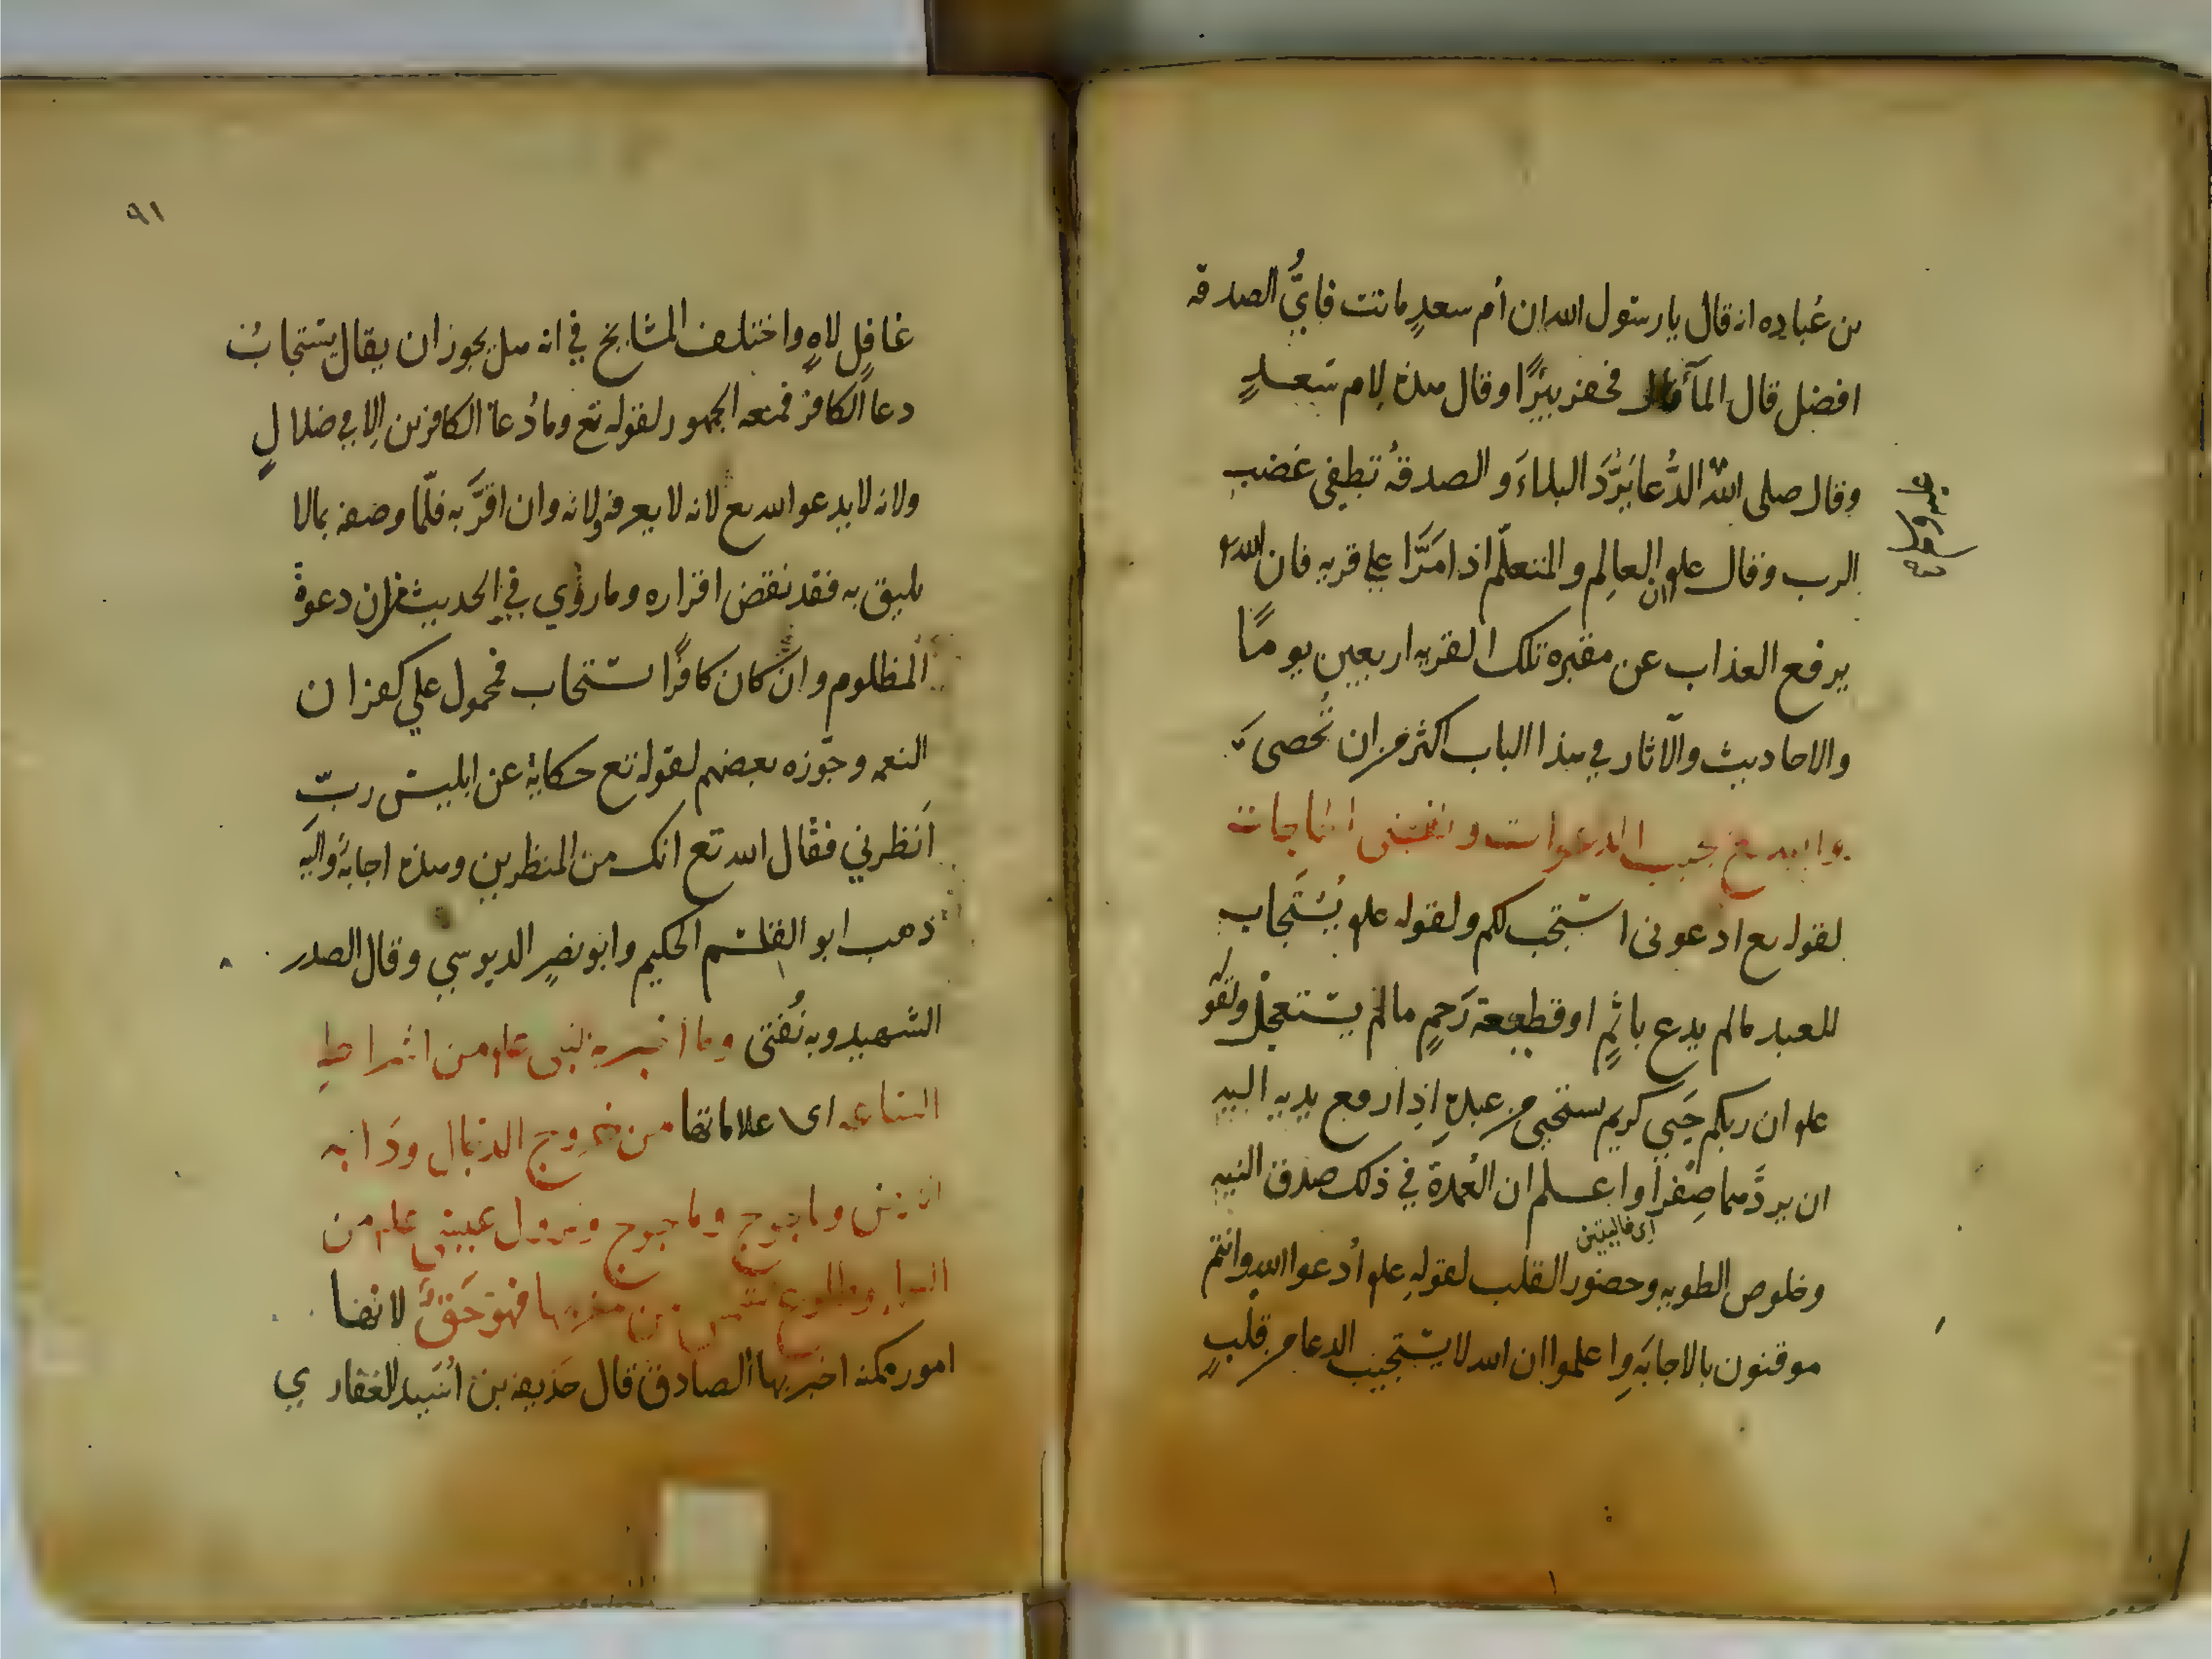 بن عُباده انه قال يا رسول الله ان أم سعدٍ ماتت فايُّ الصدقه
افضل قال المآء قال فحفر بئرًا وقال هذه لام سَعدٍ
وقال صلى الله الدُّعا يَرُدَّ البلاءَ و الصدقةُ تطفي غضب
عليه وسلم
الرب وقال علم ان العالِم والمتعلّم اذا مَرَّا علي قريه فان الله
يرفع العذاب عن مقبره تلك القريه اربعين يومًا
والاحاديث والآثار في هذا الباب اكثر من ان تُحصى
والله تع يجيب الدعوات و يقضى الحاجات
لقوله تع ادعونى استجب لكم ولقوله علم يُسْتَجَاب
للعبد مالم يدع باثمٍ او قطيعة رَحِمٍ مالم يستعجل ولقوله
علم ان ربكم حَيي كريم يستحيى من عبده اِذا رفع يديه اليه
ان يردَّهما صِفْرًا واعلم ان العُمدة في ذلك صدق النيه
اى خاليتين
وخلوص الطويه وحضور القلب لقولهِ علم اُدعوا الله وانتم
موقنون بالاجابَهِ واعلموا ان الله لا يستجيب الدعا من قلبٍ
٩١
غافلٍ لاهٍ واختلف المشايخ في انه هل يجوز ان يقال يستجابُ
دعا الكافر فمنعه الجمهور لقوله تع وما دُعآ الكافرين الا في ضلالٍ
ولانه لا يدعو الله تع لانه لا يعرفه ولانه وان اقرَّ به فلمّا وصفه بمالا
يليق به فقد نقض اقراره وما روُي في الحديث من ان دعوة
المظلوم وان كان كافرًا ستجاب فمحمول علي كفران
النعمه وجوّزه بعضهم لقوله تع حكايةً عن ابليس ربّ
اَنظرني فقال الله تع انك من المنظرين وهذه اجابةٌ واليه
ذهب ابو القاسم الحكيم وابو نصرٍ الدبوسي وقال الصدر
الشهيد وبه نُفتى وما اخبر به النبى علم من اشراط
الساعه اى علاماتها من خروج الدجال ودَابه
الارض وياجوج وماجوج ونزول عيسى علم من
السماء وطلوع الشمس من مغربها فهو حَقٌّ لانها
امور ممكنه اخبر بها الصادق قال حذيفه بن اُسَيد الغفاري